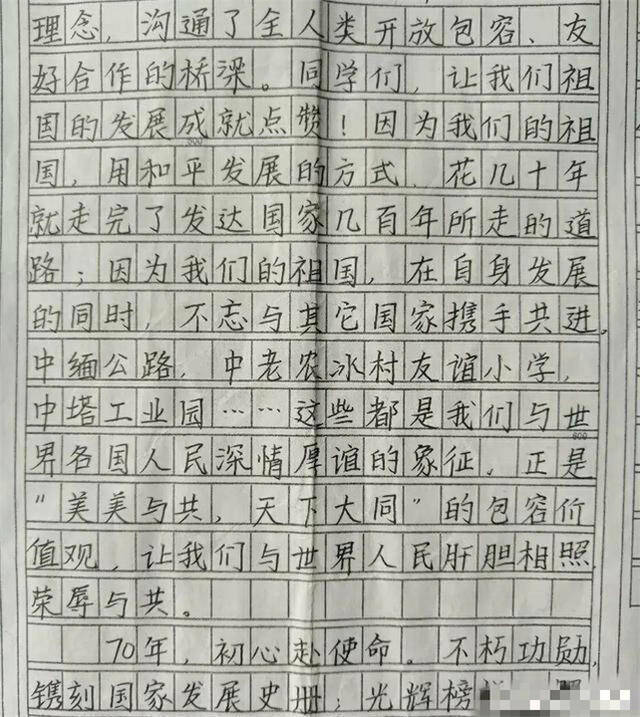 理念，沟通了全人类开放包容、友
好合作的桥深。同学们，让我们祖
国的发展成就点赞！因为我们的祖
国，用和平发展的方式，花几十年
就走完了发达国家几百年所走的道
路；因为我们的祖国，在自身发展
的同时，不忘与其它国家携手共进。
中缅公路，中老农冰村友谊小学，
中塔工业园……这些都是我们与世
界各国人民深情厚谊的象征，正是
“美美与共，天下大同”的包容价
值观，让我们与世界人民肝胆相照，
荣辱与共。
70年，初心赴使命。不朽功勋，
镌刻国家发展史册；光辉榜